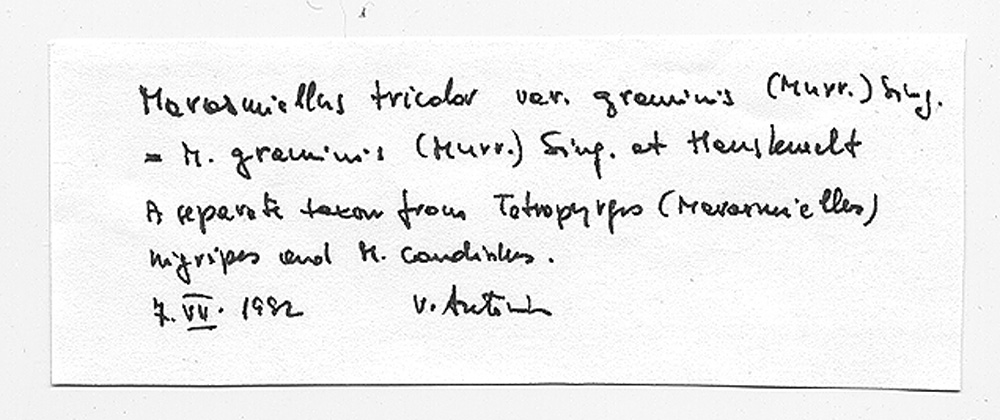 Marasmiellus tricolor var. graminis (Murr.) Sing.
= M. graminis (Murr.) Sing. et Hausknecht
A separate taxon from Tetrapyrgos (Marasmiellus)
nigripes and M. candidus.
7. VII. 1992 V. Antonín